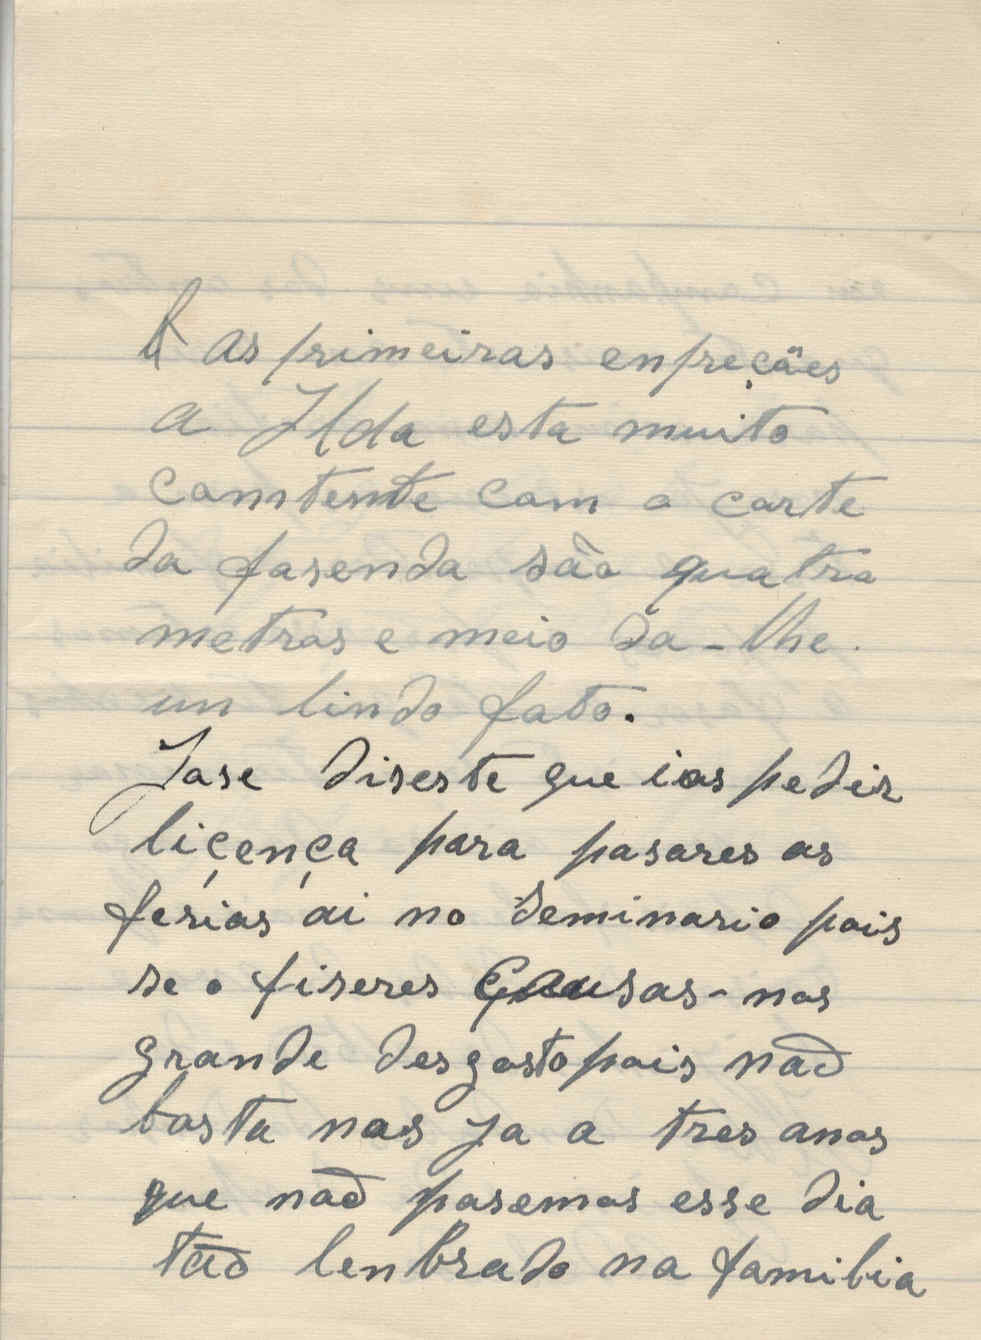 as primeiras enpreções
a Ilda esta muito
comtemte com o corte
da fasenda são quatro
metros e meio da-lhe
un lindo fato.
Jose diseste que ias pedir
liçença para pasares as
ferias ai no Seminario pois
se o fiseres Causas-nos
grande desgosto pois naõ
basta nos ja a tres anos
que naõ pasemos esse dia
taõ lenbrado na familia